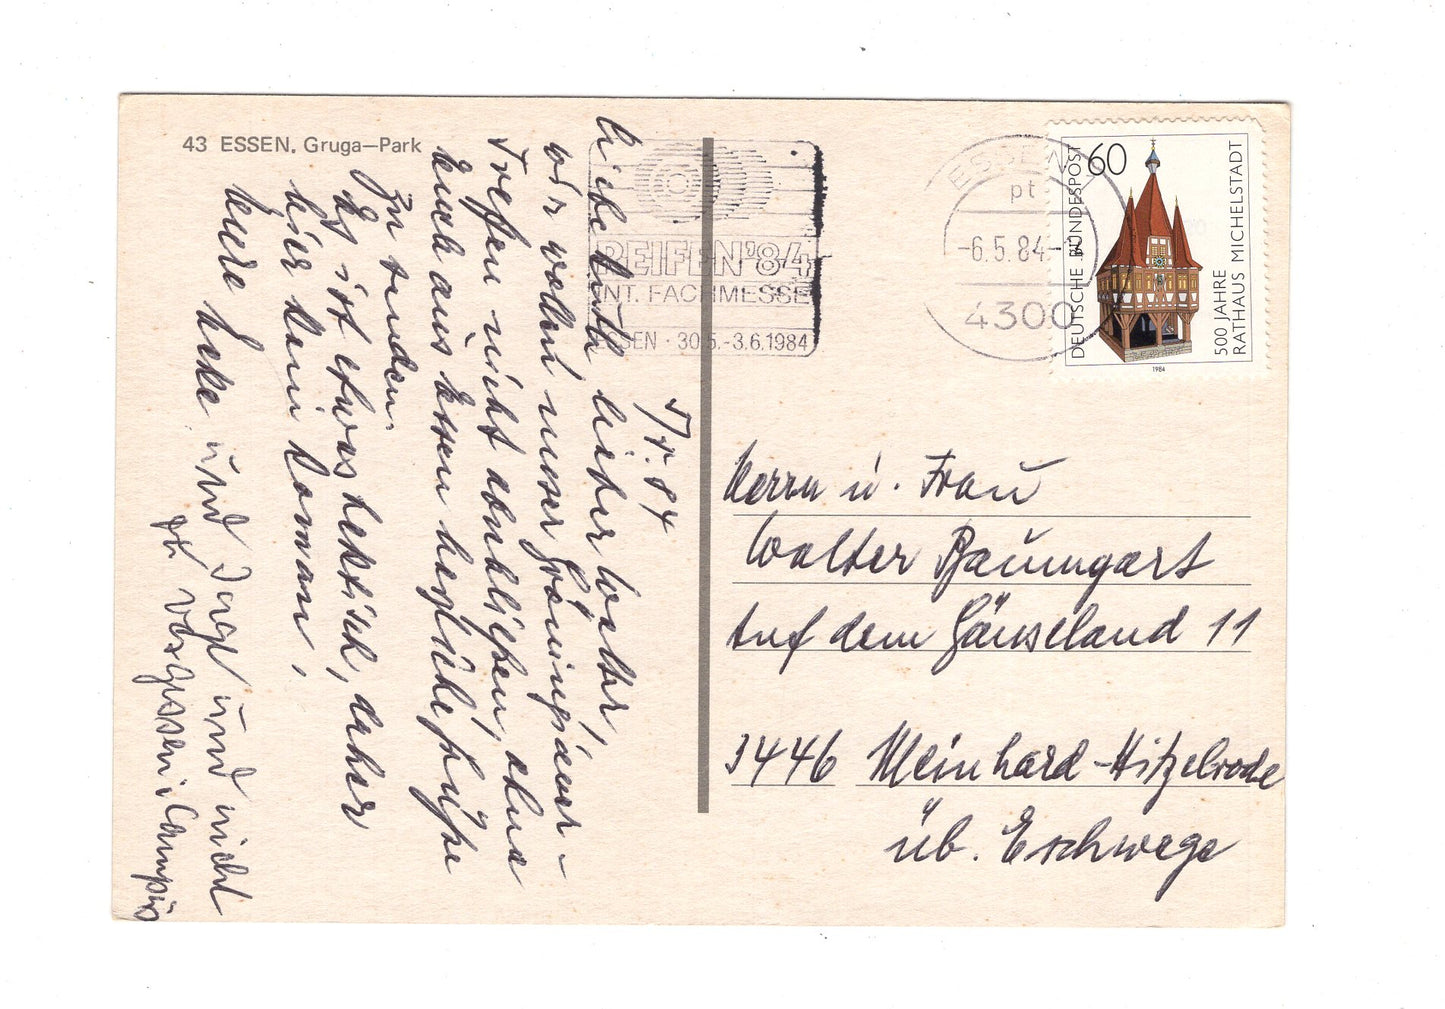 43 ESSEN, Gruga-Park
REIFEN '84
INT. FACHMESSE
ESSEN · 30.5.-3.6.1984
ESSEN
pt
-6.5.84-
4300
DEUTSCHE BUNDESPOST
60
500 JAHRE
RATHAUS MICHELSTADT
1984
5/5.84
lieber Walter,
wir wollen unser
Treffen nicht abschließen, ohne
Euch aus Essen herzliche Grüße
zu senden.
Es ist etwas hektisch, daher
hier kein Roman.
Eure und Inge und nicht
zu vergessen Campino
Herrn u. Frau
Walter Baumgart
Auf dem Gänseland 11
3446 Meinhard-Hitzelrode
üb. Eschwege